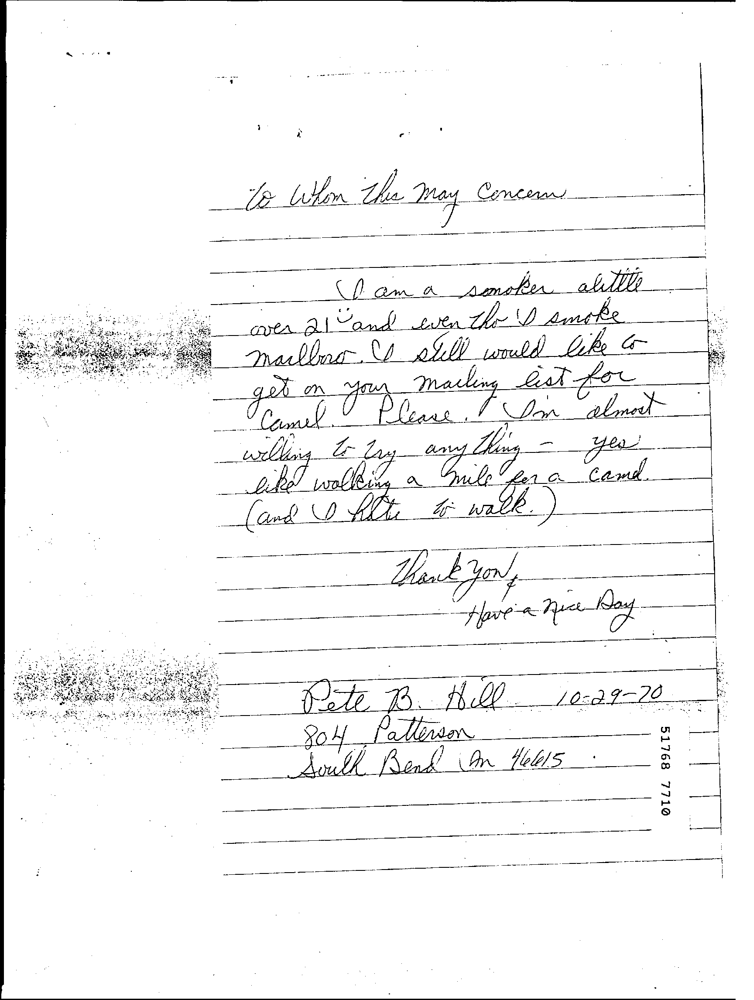 To Whom This May Concern
I am a smoker alittle
over 21 and even tho I smoke
Marlboro. I still would like to
get on your mailing list for
Camel. Please. I'm almost
willing to try anything - yes
like walking a mile for a camel.
(and I hate to walk.)
Thank You,
Have a nice Day
Pete B. Hill 10-29-70
804 Patterson
South Bend In 46615
51768 7710